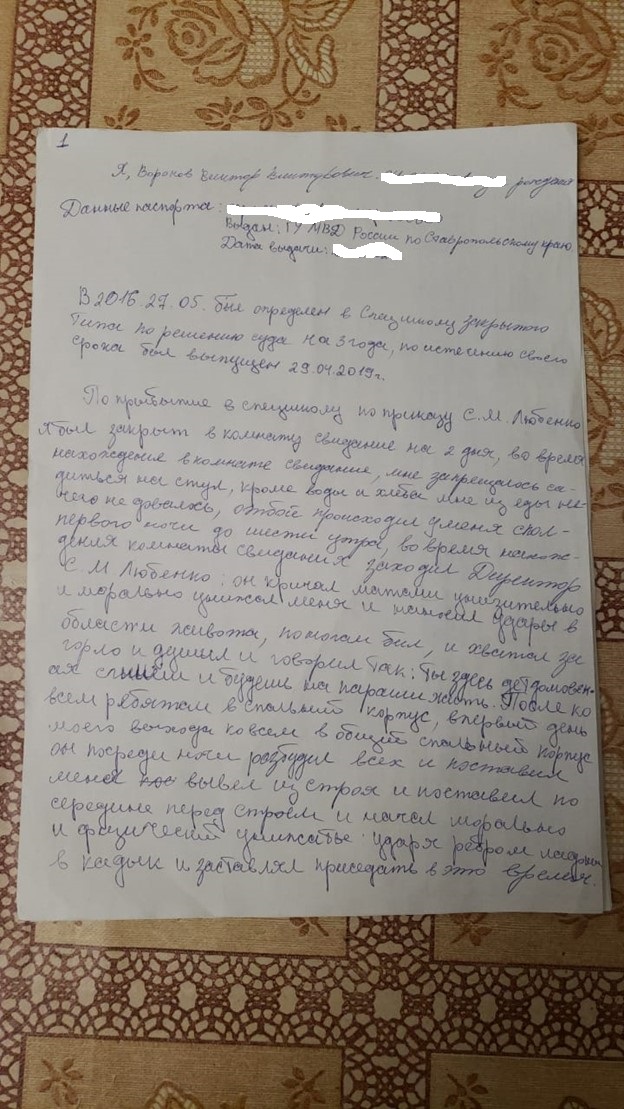 1
Я, Воронов Виктор Викторович. рождения
Данные паспорта:
Выдан: ГУ МВД России по Ставропольскому краю
Дата выдачи:
В 2016. 27. 05. был определен в Спецшколу закрытого
Типа по решению суда на 3 года, по истечению своего
срока был выпущен 29.04.2019г.
По прибытие в спецшколу по приказу С.М. Любенко
Я был закрыт в комнату свидание на 2 дня, во время
нахождение в комнате свидание, мне запрещалось са-
диться на стул, кроме воды и хлеба мне из еды не-
чего не довалось, отбой происходил у меня с пол-
первого ночи до шести утра, во время нахож-
дения комнаты свидания заходил Директор
С.М. Любенко: он кричал матами унизительно
и морально унижал меня и наносил удары в
области живота, по ногам бил, и хватал за
горло и душил и говорил так: Ты здесь детдомовен-
всем ребятам в спальный корпус, в первый день
моего выхода ко всем в общий спальный корпус
он посреди ночи разбудил всех и поставил
меня вывел из строя и поставил по
середине перед строем и начал морально
и физический унижать ударя ребром ладони
в кадык и заставлял приседать в это время.